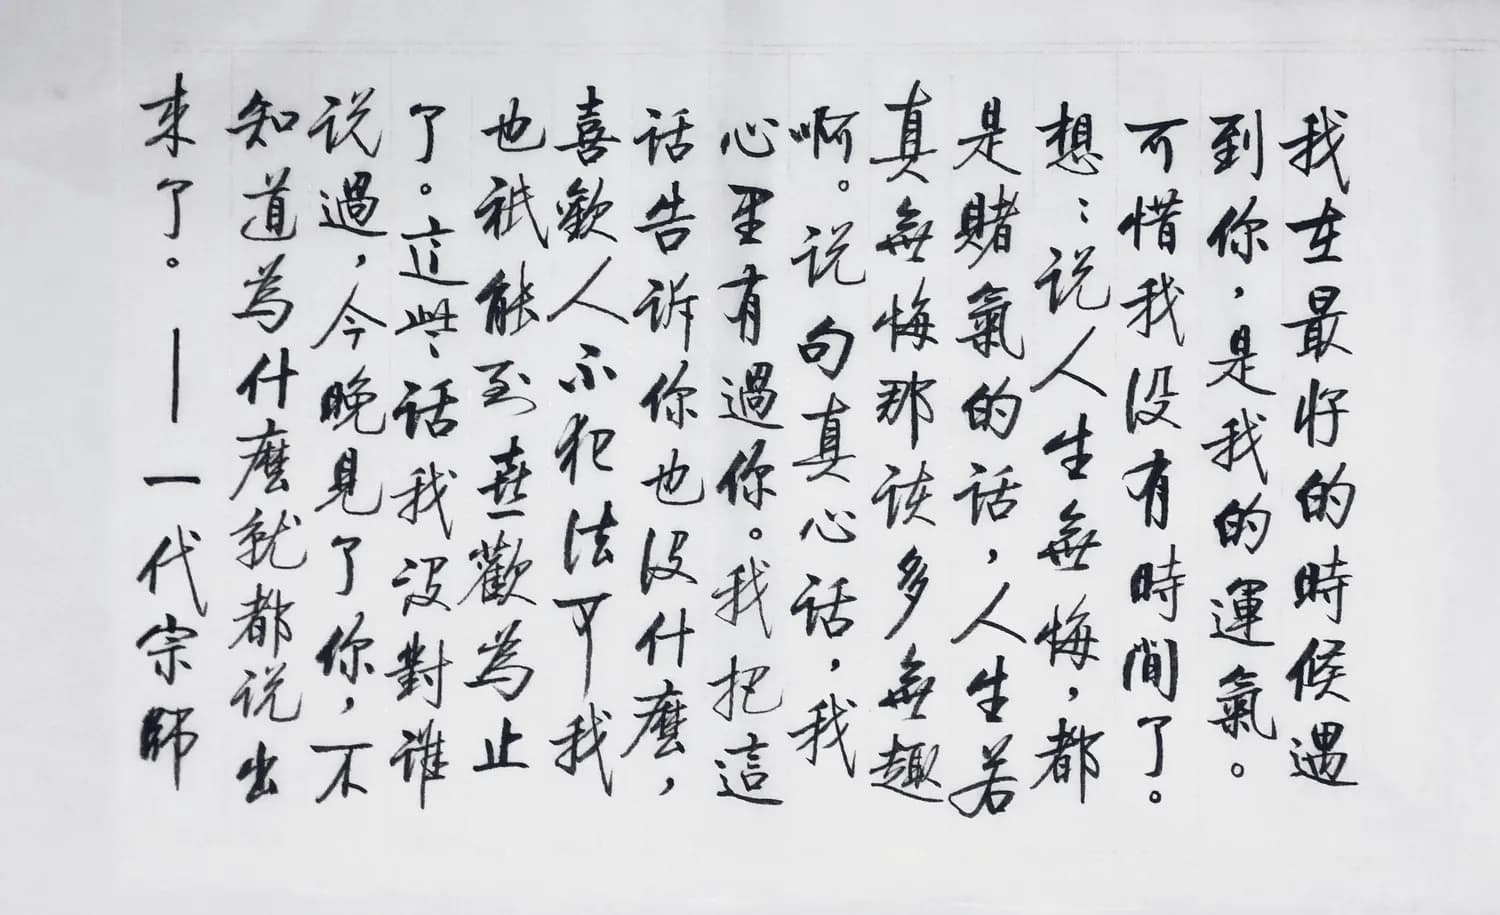 我在最好的時候遇
到你，是我的運氣。
可惜我没有時間了。
想：说人生無悔，都
是賭氣的话，人生若
真無悔那该多無趣
啊。说句真心话，我
心里有過你。我把這
话告诉你也没什麼，
喜歡人不犯法可我
也衹能到喜歡為止
了。這些话我没對谁
说過，今晚見了你，不
知道為什麼就都说出
来了。——一代宗師